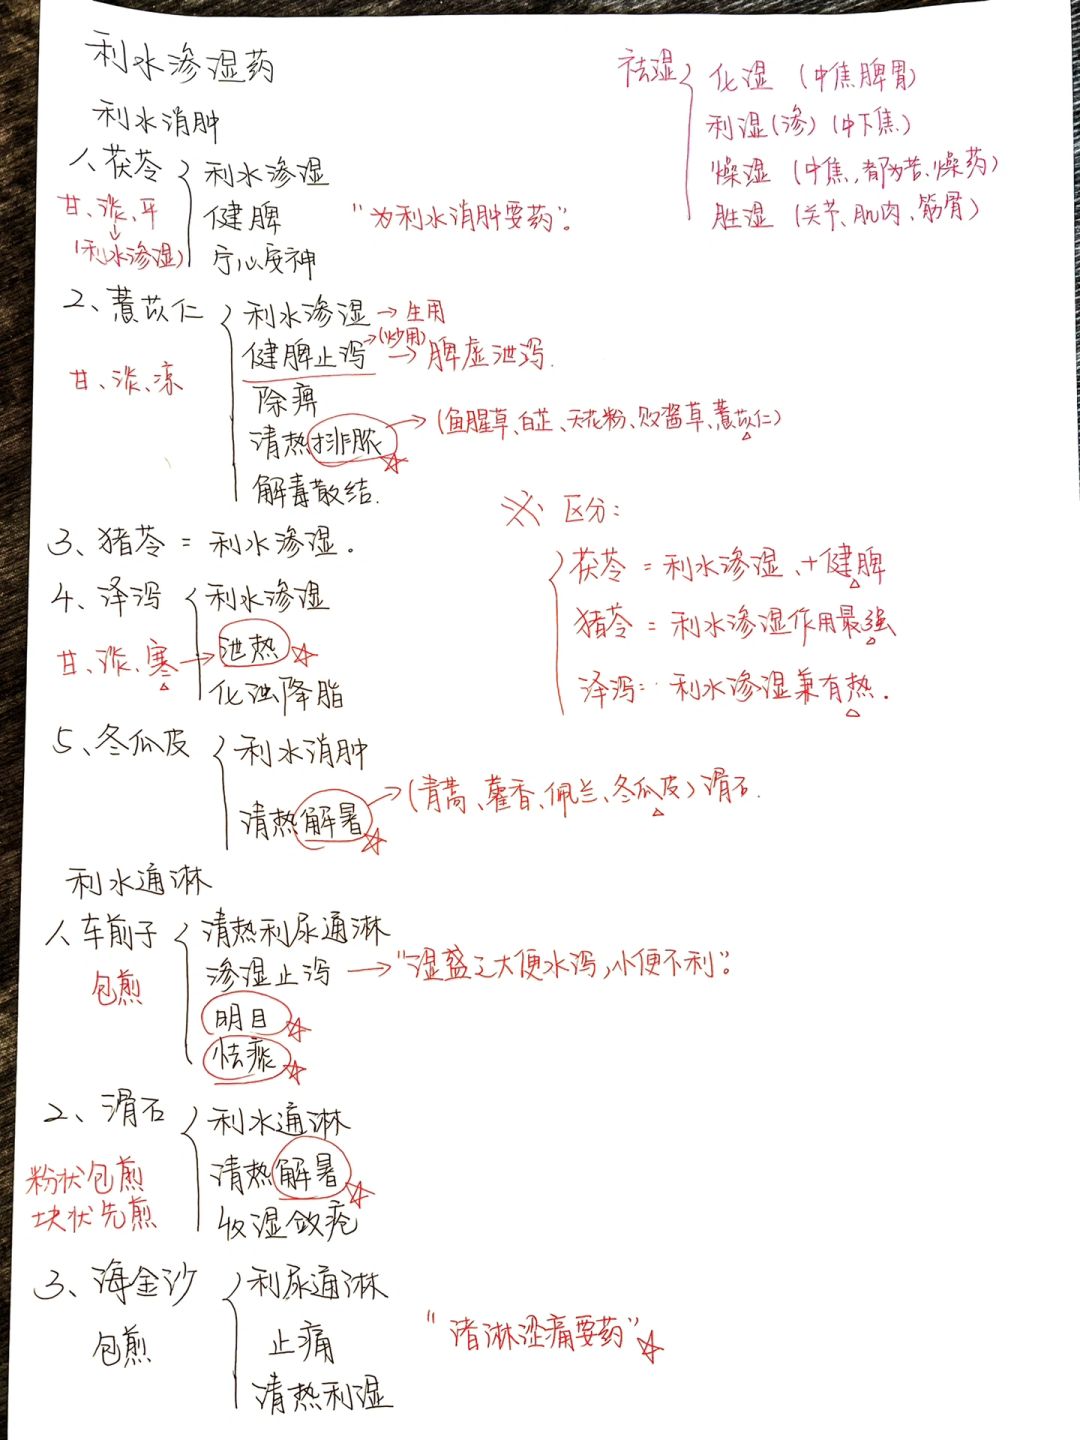 利水渗湿药
祛湿 化湿 (中焦脾胃)
利湿(渗) (中下焦)
燥湿 (中焦,都为苦、燥药)
胜湿 (关节、肌肉、筋骨)
利水消肿
1、茯苓 利水渗湿
甘、淡、平 健脾 "为利水消肿要药"。
(利水渗湿) 宁心安神
2、薏苡仁 利水渗湿→生用
健脾止泻→(炒用)→脾虚泄泻.
甘、淡、凉
除痹
清热排脓→(鱼腥草、白芷、天花粉、败酱草、薏苡仁)
解毒散结.
3、猪苓=利水渗湿。
※ 区分:
茯苓=利水渗湿、+健脾
猪苓=利水渗湿作用最强
泽泻: 利水渗湿兼有热.
4、泽泻 利水渗湿
甘、淡、寒→泄热
化浊降脂
5、冬瓜皮 利水消肿
清热解暑→(青蒿、藿香、佩兰、冬瓜皮)滑石.
利水通淋
1、车前子 清热利尿通淋
包煎 渗湿止泻→"湿盛之大便水泻,小便不利"。
明目
祛痰
2、滑石 利水通淋
粉状包煎 清热解暑
块状先煎 收湿敛疮
3、海金沙 利尿通淋
包煎 止痛 "诸淋涩痛要药"
清热利湿